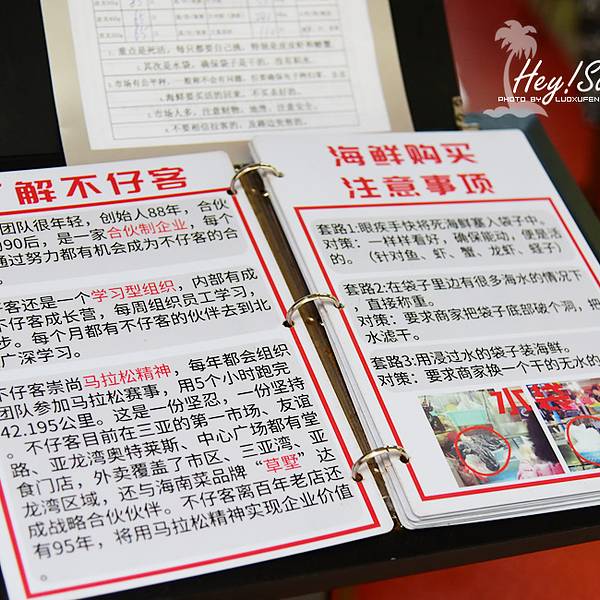 1.重点是死活,每只都要自己挑,特别是皮皮虾和螃蟹。
其次是水袋,确保袋子是干的,没有积水。
海鲜要买活的回来,不买杀好的。
5.市场人多,注意财物,地滑,注意安全。
Hey!Su
PHOTO BY LUOXUFEN
了解不仔客
团队很年轻,创始人88年,合伙
090后,是一家合伙制企业,每个
通过努力都有机会成为不仔客的合
子客还是一个学习型组织,内部有成
不仔客成长营,每周组织员工学习,
步。每个月都有不仔客的伙伴去到北
广深学习。
不仔客崇尚马拉松精神,每年都会组织
团队参加马拉松赛事,用5个小时跑完
42.195公里。这是一份坚忍,一份坚持
。不仔客目前在三亚的第一市场、友谊
路、亚龙湾奥特莱斯、中心广场都有堂
食门店,外卖覆盖了市区、三亚湾、亚
龙湾区域,还与海南菜品牌“草墅”达
成战略合伙伙伴。不仔客离百年老店还
有95年,将用马拉松精神实现企业价值
。
海鲜购买
注意事项
套路1:眼疾手快将死海鲜塞入袋子中。
对策:一样样看好,确保能动,便是活
的。(针对鱼、虾、蟹、龙虾、蛏子)
套路2:在袋子里边有很多海水的情况下
,直接称重。
对策:要求商家把袋子底部破个洞,把
水滤干。
套路3:用浸过水的袋子装海鲜。
对策:要求商家换一个干的无水的
水袋